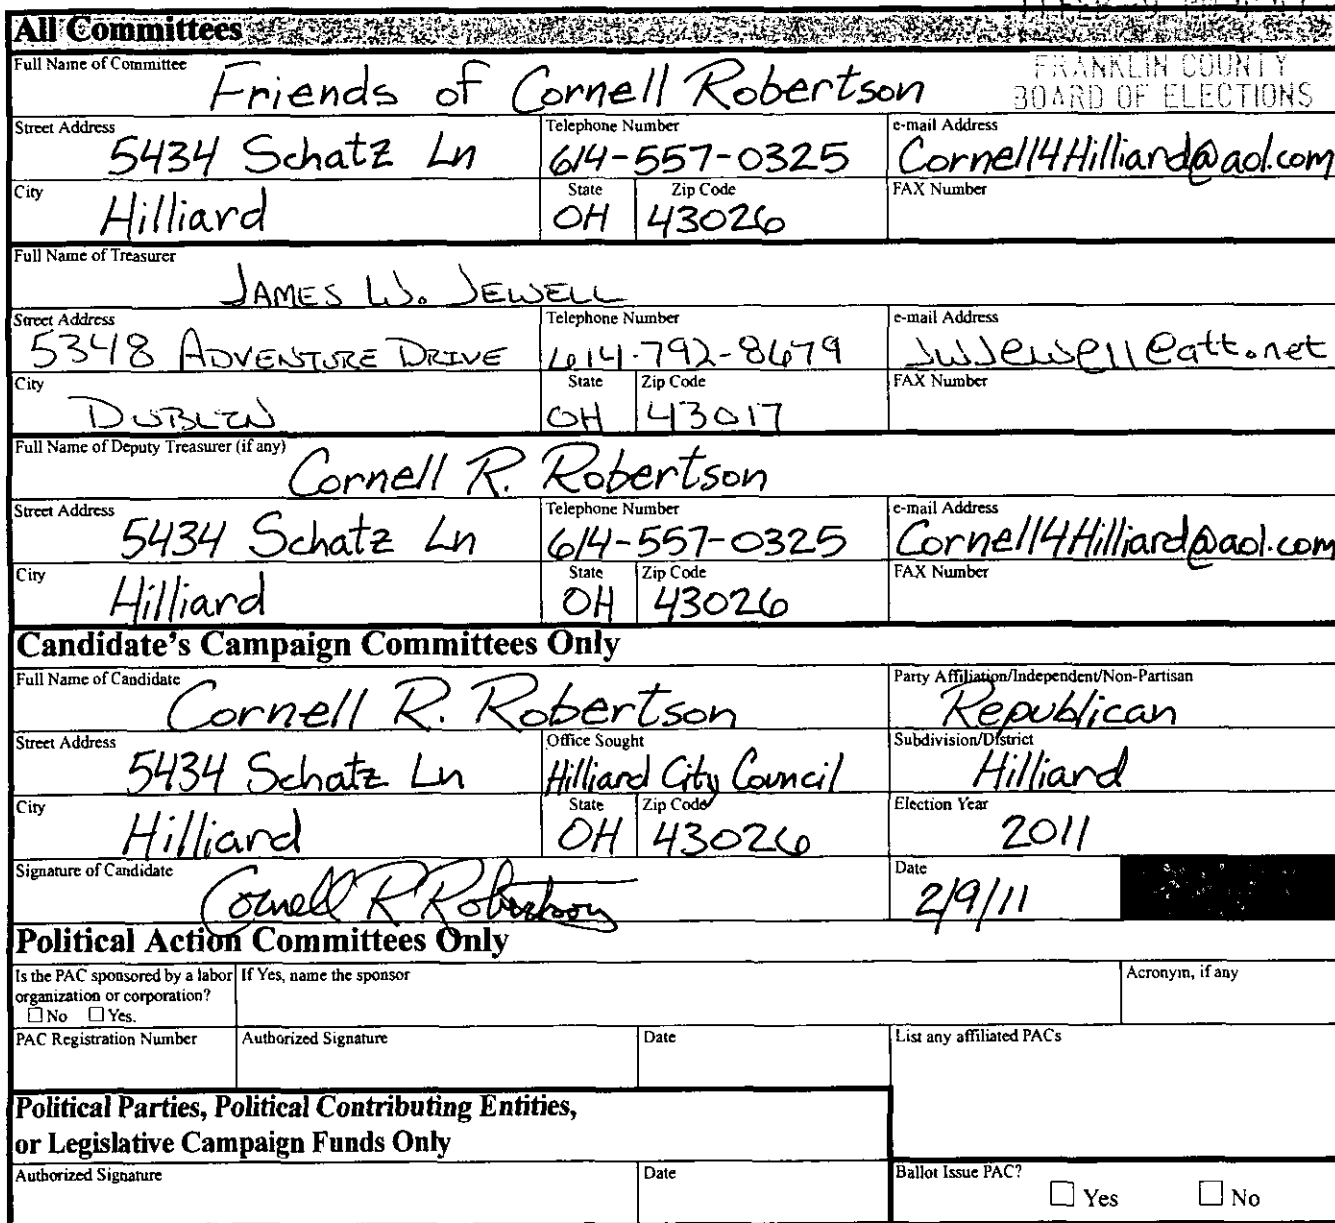 All Committees
Full Name of Committee Friends of Cornell Robertson
FRANKLIN COUNTY
BOARD OF ELECTIONS
Street Address 5434 Schatz Ln Telephone Number 614-557-0325 e-mail Address Cornell4Hilliard@aol.com
City Hilliard State OH Zip Code 43026 FAX Number
Full Name of Treasurer
JAMES W. JEWELL
Street Address 5348 ADVENTURE DRIVE Telephone Number 614-792-8679 e-mail Address JWJewell@att.net
City DUBLIN State OH Zip Code 43017 FAX Number
Full Name of Deputy Treasurer (if any) Cornell R. Robertson
Street Address 5434 Schatz Ln Telephone Number 614-557-0325 e-mail Address Cornell4Hilliard@aol.com
City Hilliard State OH Zip Code 43026 FAX Number
Candidate's Campaign Committees Only
Full Name of Candidate Cornell R. Robertson Party Affiliation/Independent/Non-Partisan Republican
Street Address 5434 Schatz Ln Office Sought Hilliard City Council Subdivision/District Hilliard
City Hilliard State OH Zip Code 43026 Election Year 2011
Signature of Candidate Cornell R Robertson Date 2/9/11
Political Action Committees Only
Is the PAC sponsored by a labor organization or corporation?
No Yes.
If Yes, name the sponsor
Acronym, if any
PAC Registration Number Authorized Signature Date List any affiliated PACs
Political Parties, Political Contributing Entities,
or Legislative Campaign Funds Only
Authorized Signature Date Ballot Issue PAC?
Yes No